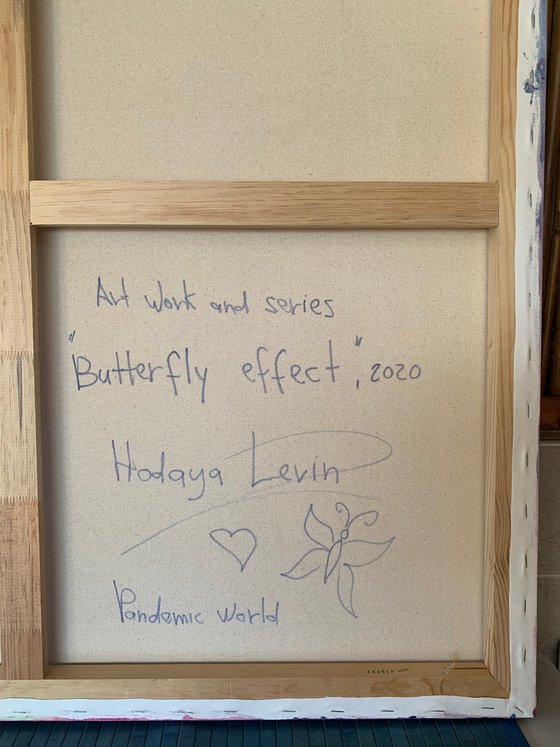 Art work and series
"Butterfly effect", 2020
Hodaya Levin
Pandemic world